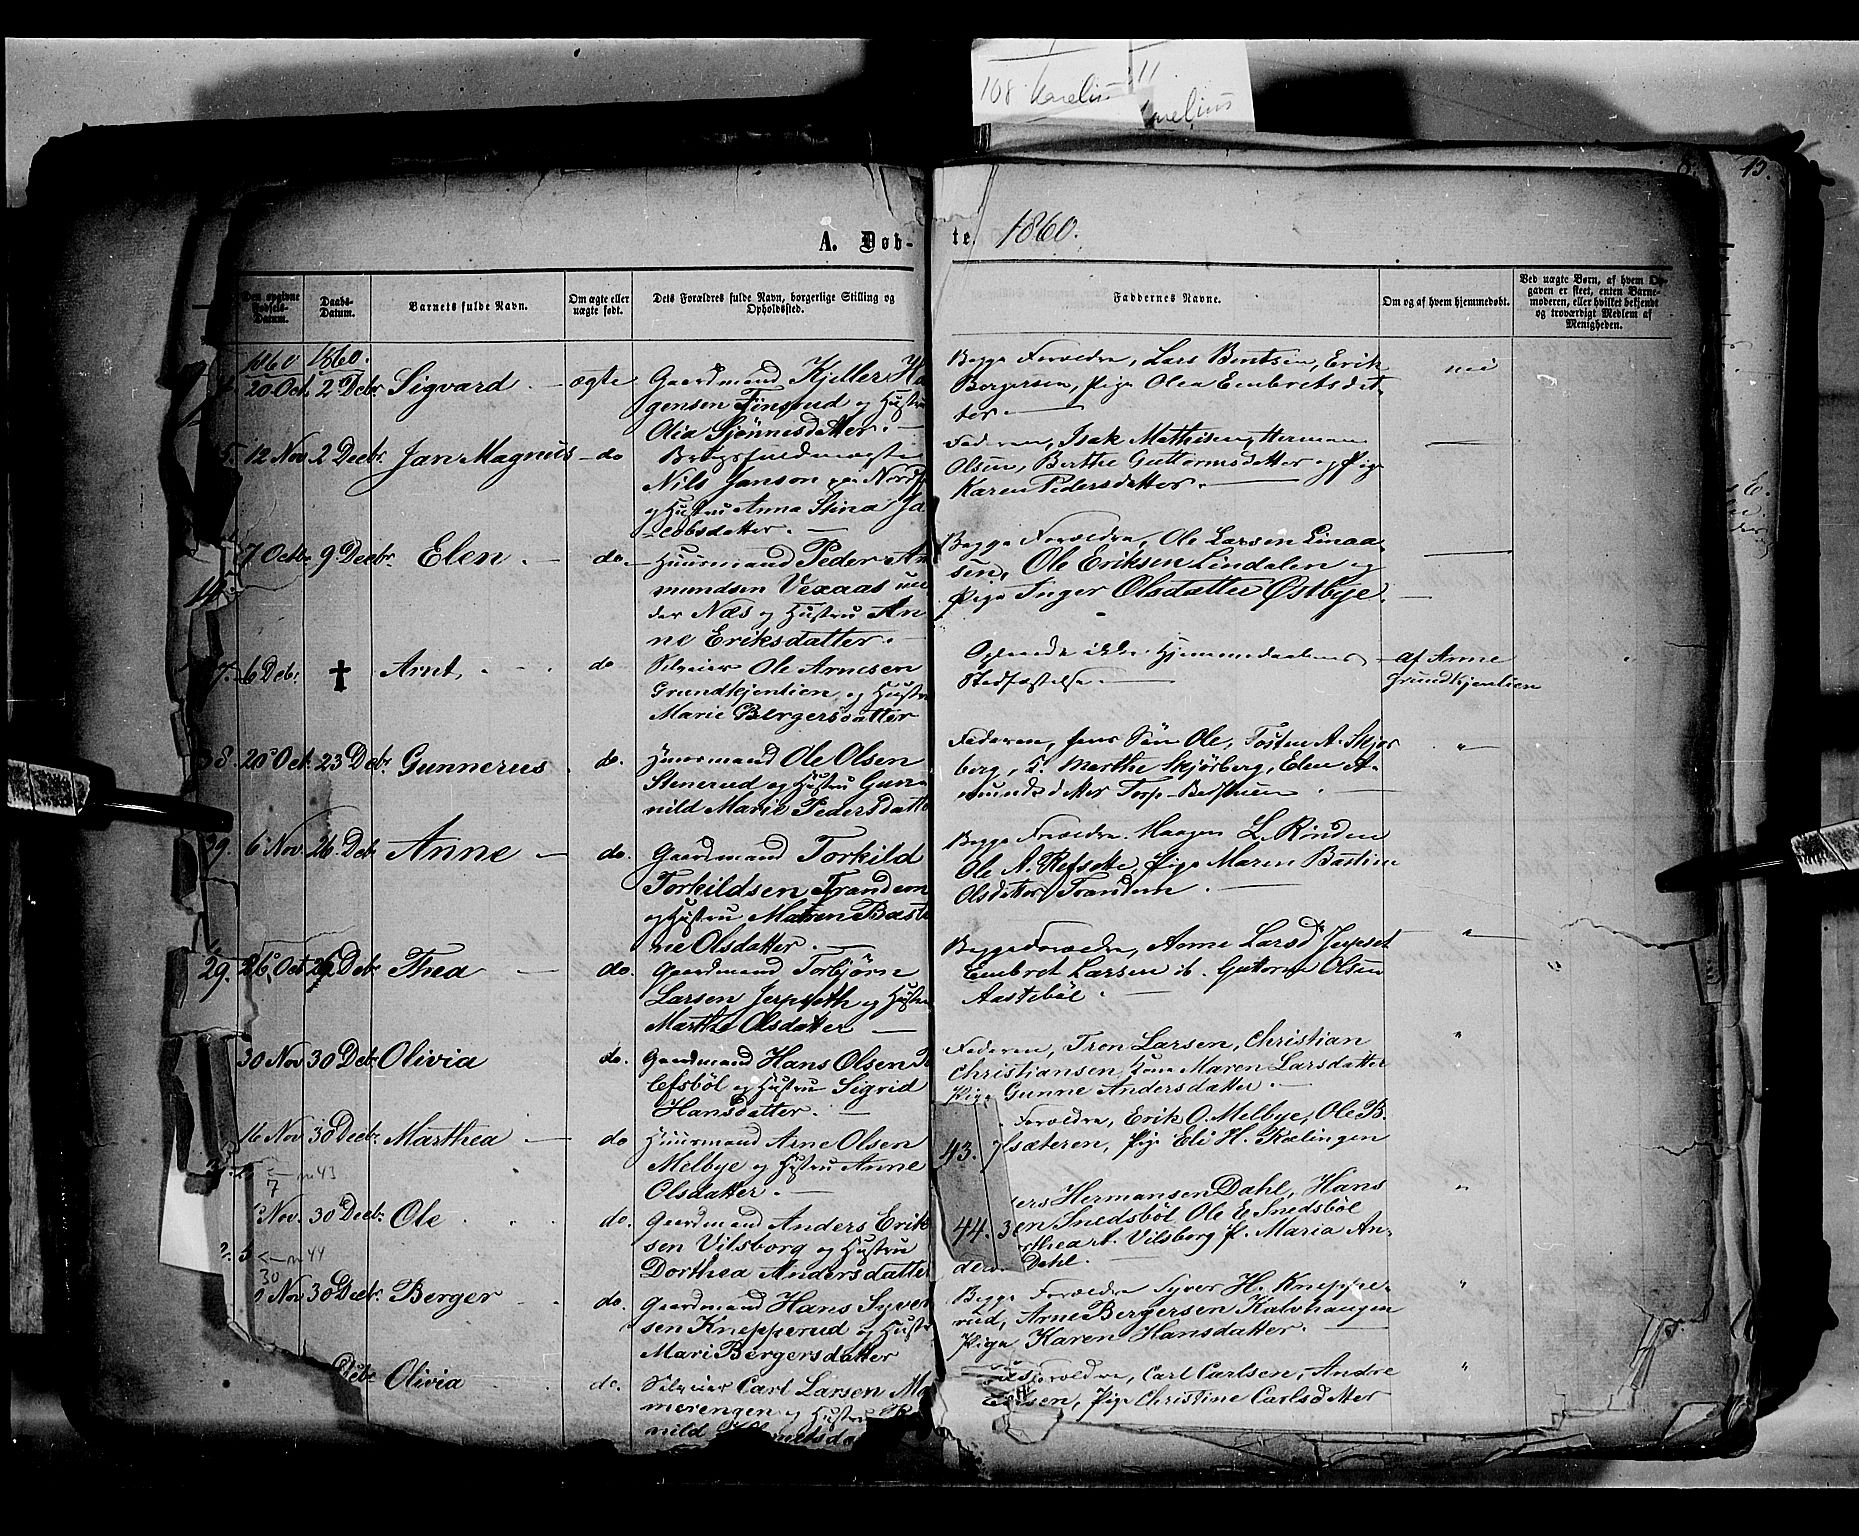 108 Karelius 11
Karelius
15.
A. Døb-
te. 1860.
Den opgivne Fødsels-Datum.
Daabs-Datum.
Barnets fulde Navn.
Om ægte eller uægte født.
Dets Forældres fulde Navn, borgerlige Stilling og Opholdssted.
Faddernes Navne.
Om og af hvem hjemmedøbt.
Ved uægte Børn, af hvem Opgaven er skeet, enten Barnemoderen, eller hvilket bekjendt og troværdigt Medlem af Menigheden.
1860 1860.
20 Oct. 2 Debr. Sigvard ægte
Gaardmand Kjeller Ha
gensen Finsrud og Hustru
Olia Gjønnesdatter.
Begge Forældre, Lars Berntsen, Erik
Bergersen, Pige Olea Embretsdat-
ter.
nei
5. 12 Nov 2 Decbr. Jan Magnus do
Brugsfuldmægtig
Nils Janson paa Nord
og Hustru Anna Stina Ja
cobsdatter.
Faderen, Isak Mathisen, Herman
Olsen, Berthe Guttormsdatter og Pige
Karen Pedersdatter.
7 Octbr. 9 Decbr. Elen do.
Huusmand Peder Am
mundsen Vexaas un
der Næs og Hustru An
ne Eriksdatter.
Begge Forældre, Ole Larsen Linaa-
sen, Ole Eriksen Lindalen og
Pige Inger Olsdatter Østbye.
7. 6 Debr. † Arnt do
Ole Arnesen
Grundkjenlien og Hustru
Marie Bergersdatter
ikke Hjemmedaabens
Stadfæstelse.
af Anne
Grundkjenlien
38. 20 Oct. 23 Debr. Gunnerus do.
Huusmand Ole Olsen
Stenerud og Hustru Gun-
nild Marie Pedersdatter
Faderen, hans Søn Ole, Tosten A. Skjør
berg, K. Marthe Skjørberg, Elen A-
mundsdatter Torp-Bedstuen
39. 6 Nov. 26. Debr Anne do.
Gaardmand Torkild
Torkildsen Trandem
og Hustru Maren Basti
ne Olsdatter.
Begge Forældre. Haagen L. Rinden
Ole A. Refsette Pige Maren Bastine
Olsdatter Trandem.
29. 26 Oct 29 Debr Thea do.
Gaardmand Torbjørn
Larsen Jerpseth og Hustru
Marthe Olsdatter
Begge Forældre, Anne Larsdr. Jerpset
Embret Larsen ib. Guttorm Olsen
Aastebøl.
30 Nov 30 Debr Olivia do.
Gaardmand Hans Olsen
lefsbøl og Hustru Sigrid
Hansdatter.
Faderen, Tron Larsen, Christian
Christiansen, Kone Maren Larsdatter
Pige Gunne Andersdatter.
16 Nov 30 Decbr. Marthea do
Huusmand Arne Olsen
Melbye og Hustru Anne
Olsdatter.
Forældre, Erik O. Melbye, Ole B.
43. sæteren, Pige Eli H. Kælingen
← nr 43
7
Nov. 30 Decbr. Ole do.
Gaardmand Anders Erik
sen Vilsborg og Hustru
Dorthea Andersdatter
ers Hermansen Dahl, Hans
44. 3 en Snedsbøl Ole E. Snedsbøl
rthea A. Vilsberg P. Maria An-
ders Dahl.
← nr 44
30
Nov 30 Decbr. Berger do.
Gaardmand Hans Syver
sen Knepperud og Hustru
Mari Bergersdatter
Begge Forældre Syver H. Kneppe-
rud, Arne Bergersen Kalvhaugen
Pige Karen Hansdatter.
Debr Olivia do.
Carl Larsen
merengen og Hustru
nild
Forældre, Carl Carlsen, Andre
sen, Pige Christine Carlsdatter